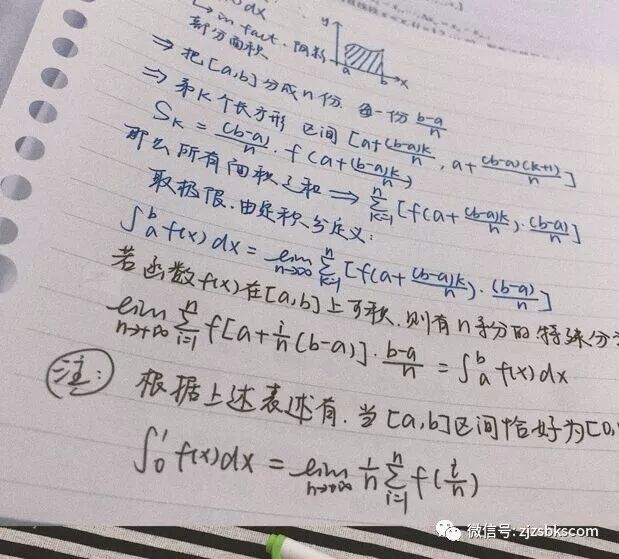 dx
↳ in fact. 阴影
部分面积
y
a b x
⇒ 把[a,b]分成n份 每一份 (b-a)/n
⇒ 第K个长方形 区间 [a+(b-a)k/n, a+(b-a)(k+1)/n]
S_K = (b-a)/n · f(a+(b-a)k/n)
那么所有面积之和 ⇒ ∑_{k=1}^{n} [f(a+(b-a)k/n)·(b-a)/n]
取极限,由定积分定义:
∫_a^b f(x)dx = lim_{n→∞} ∑_{k=1}^{n} [f(a+(b-a)k/n)·(b-a)/n]
若函数f(x)在[a,b]上可积,则有n等分的特殊分
lim_{n→+∞} ∑_{i=1}^{n} f[a+i/n(b-a)]·(b-a)/n = ∫_a^b f(x)dx
注: 根据上述表述有,当[a,b]区间恰好为[0,
∫_0^1 f(x)dx = lim_{n→∞} 1/n ∑_{i=1}^{n} f(i/n)
微信号: zjzsbkscom